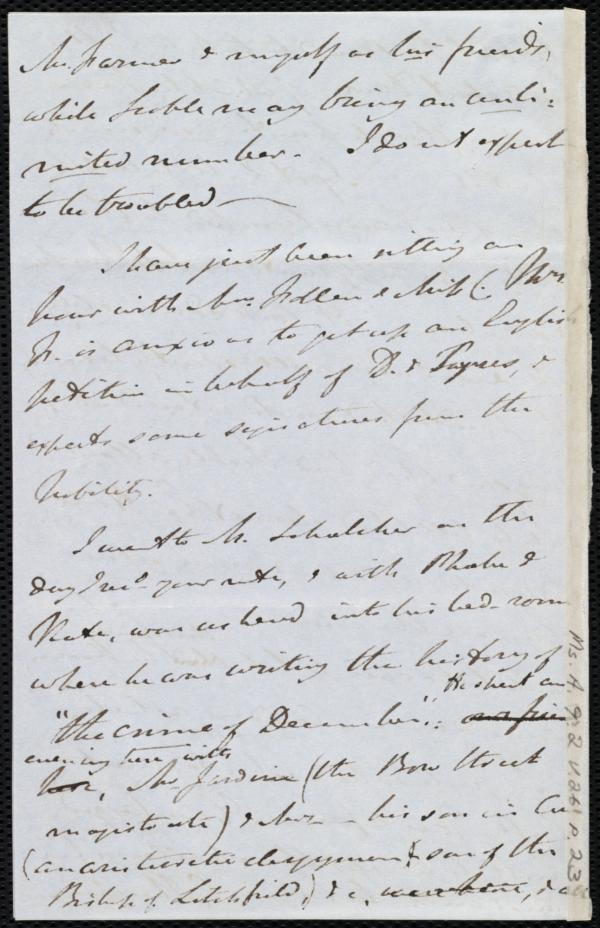 Mr. Farmer & myself as his friends,
while Seeble may bring an unli-
mited number. I do not expect
to be troubled —
I have just been sitting an
hour with Mrs. Follen & Miss C. Mrs.
F. is anxious to get up an English
petition in behalf of D. & Sayres, &
expects some signatures from the
Nobility.
I went to M. Schœlcher on the
day I recd. your note, & with Phœbe &
Kate, was ushered into his bed-room
where he was writing the history of
"the crime of December": He spent an
evening here with
Mr. Jardine (the Bow Street
magistrate) & Mrs — his son in
(an aristocratic clergyman & son of the
Bishop of Litchfield,) &c, were here, &
Ms. A. 9. 2 v. 26, p. 23